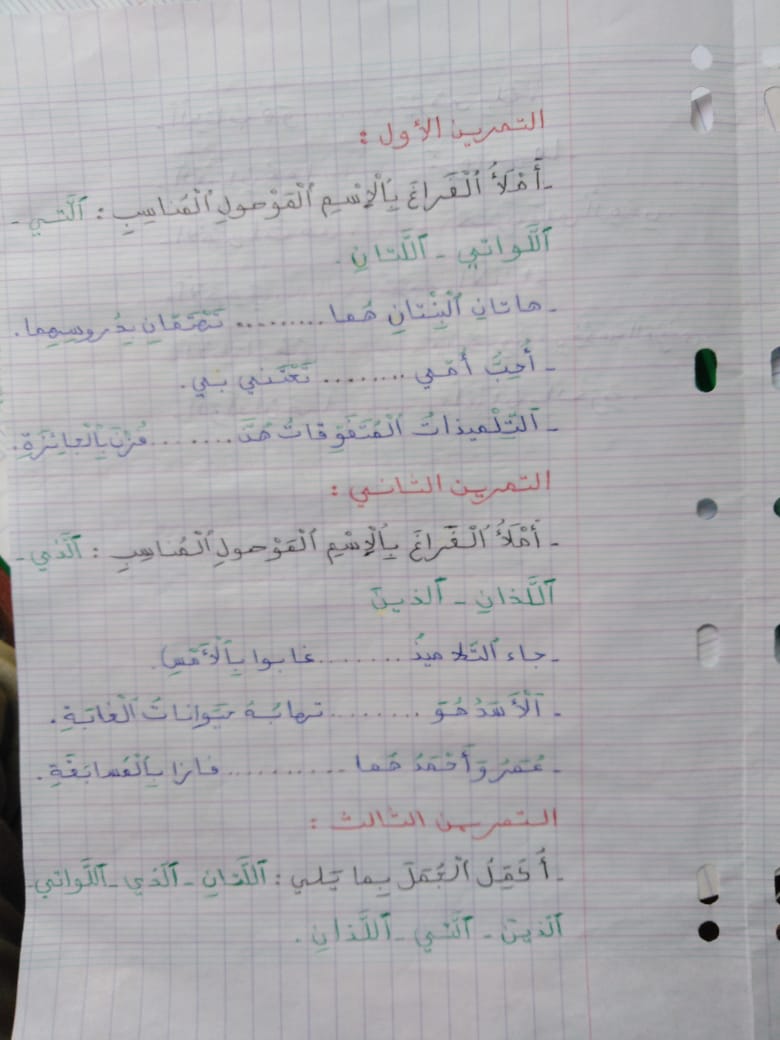 التمرين الأول :
- أَمْلَأُ ٱلْفَراغَ بِٱلْاِسْمِ ٱلْمَوْصولِ ٱلْمُناسِبِ : ٱلَّتي -
ٱللَّواتي - ٱللَّتانِ .
- هاتانِ ٱلْبِنْتانِ هُما ......... تَهْتَمّانِ بِدُروسِهِما .
- أُحِبُّ أُمّي ........ تَعْتَني بي .
- ٱلتِّلْميذاتُ ٱلْمُتَفَوِّقاتُ هُنَّ ........ فُزْنَ بِٱلْجائِزَةِ .
التمرين الثاني :
- أَمْلَأُ ٱلْفَراغَ بِٱلْاِسْمِ ٱلْمَوْصولِ ٱلْمُناسِبِ : ٱلَّذي -
ٱللَّذانِ - ٱلذينَ
- جاء ٱلتَّلاميذُ ........ غابوا بِٱلْأَمْسِ .
- ٱلْأَسَدُ هُوَ ........ تهابُهُ حَيَواناتُ ٱلْغابَةِ .
- عُمَرُ وَأَحْمَدُ هُما .......... فازا بِٱلْمُسابَقَةِ .
التمرين الثالث :
- أُكْمِلُ ٱلْجُمَلَ بِما يَلي : ٱللَّتانِ - ٱلَّذي - ٱللَّواتي -
ٱلَّذينَ - ٱلَّتي - ٱللَّذانِ .